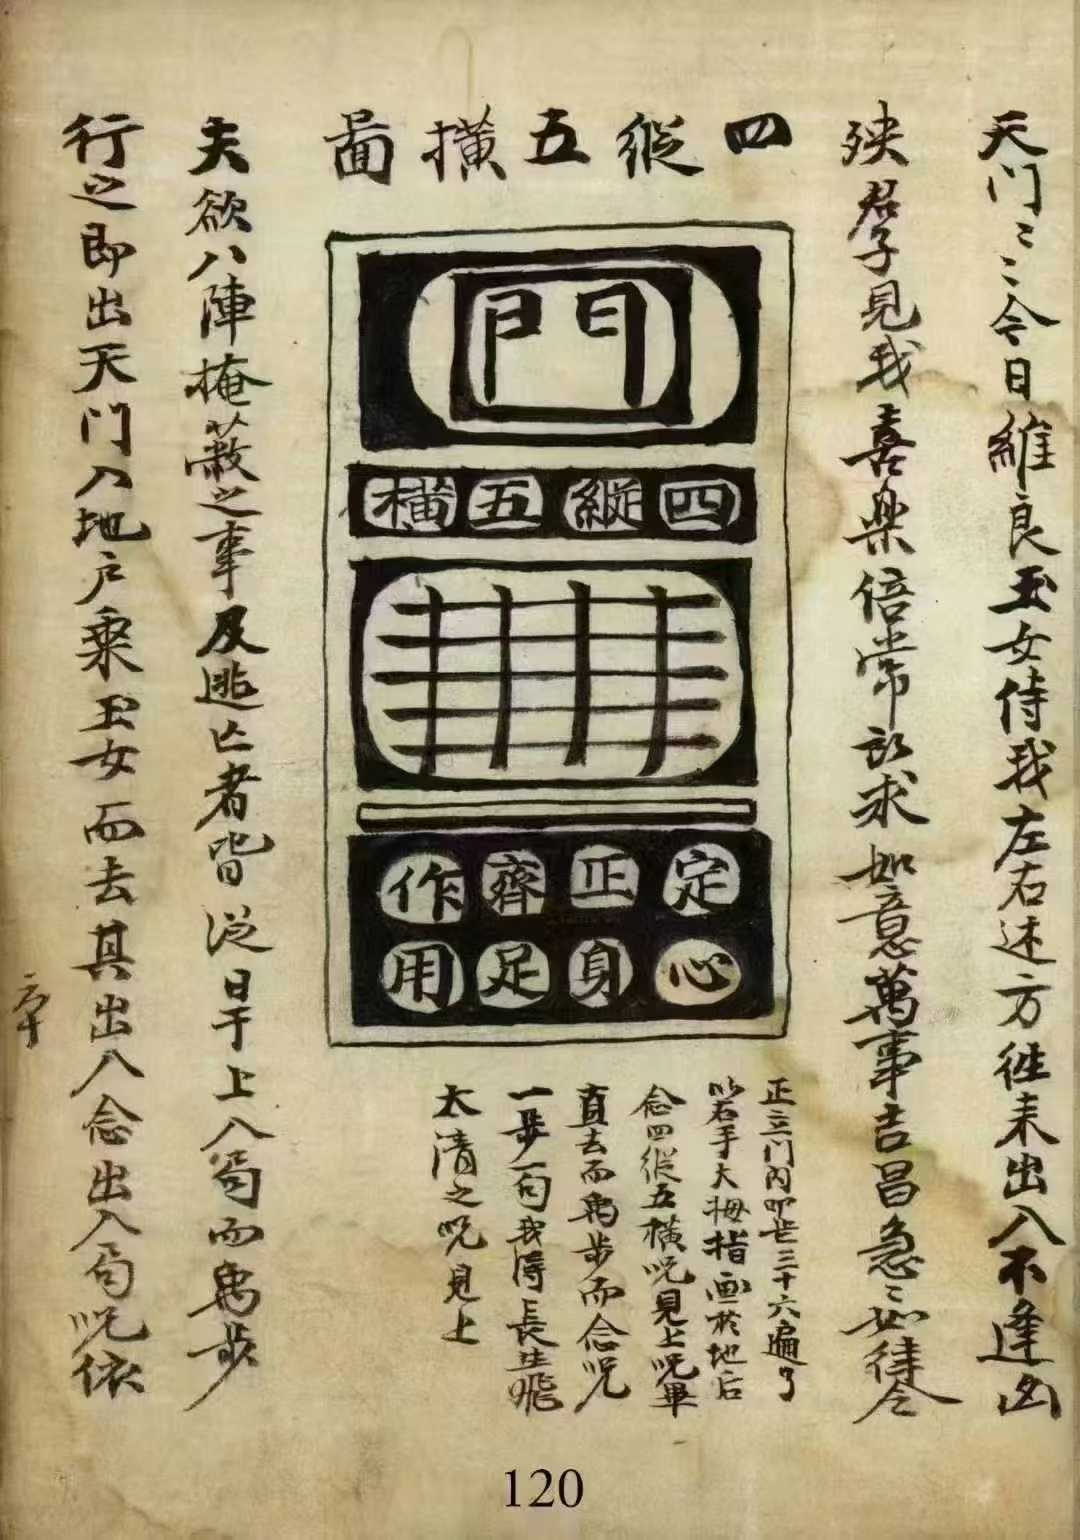 天门〻〻今日維良玉女侍我左右述方徃耒出入不逢凶
殃君子見我喜樂倍常所求如意萬事吉昌急〻如律令
四縱五横啚
門
四縦五横
定心
正身
齊足
作用
正立门内叩齿三十六遍了
以右手大拇指画於地后
念四縱五横咒見上咒畢
直去而禹步而念咒
一步一句我得長生飛
太清之咒見上
夫欲八陣掩蔽之事及逃亡者皆從日干上入局而禹步
行之即出天门入地户乘玉女而去其出入念出入局咒依
六十
120